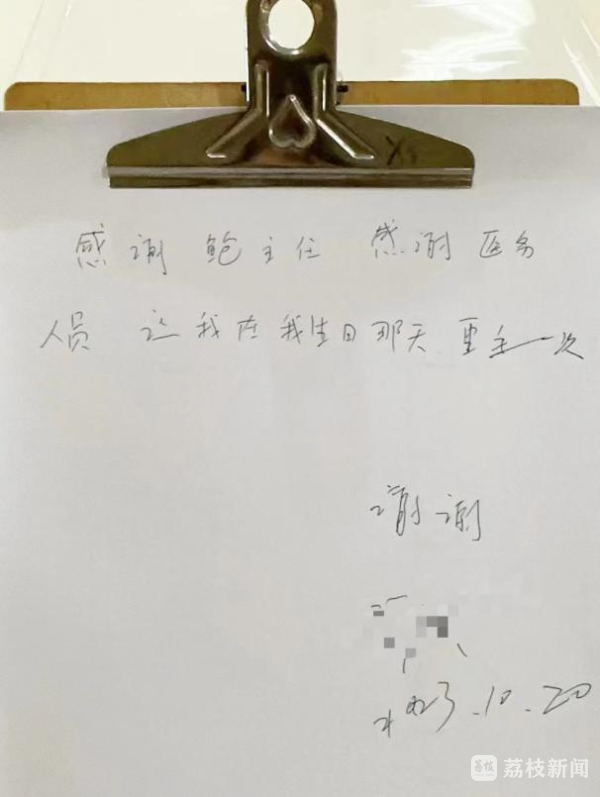 感谢 鲍主任 感谢医务
人员 让我在我生日那天重生一次
谢谢
2023.10.20
荔枝新闻